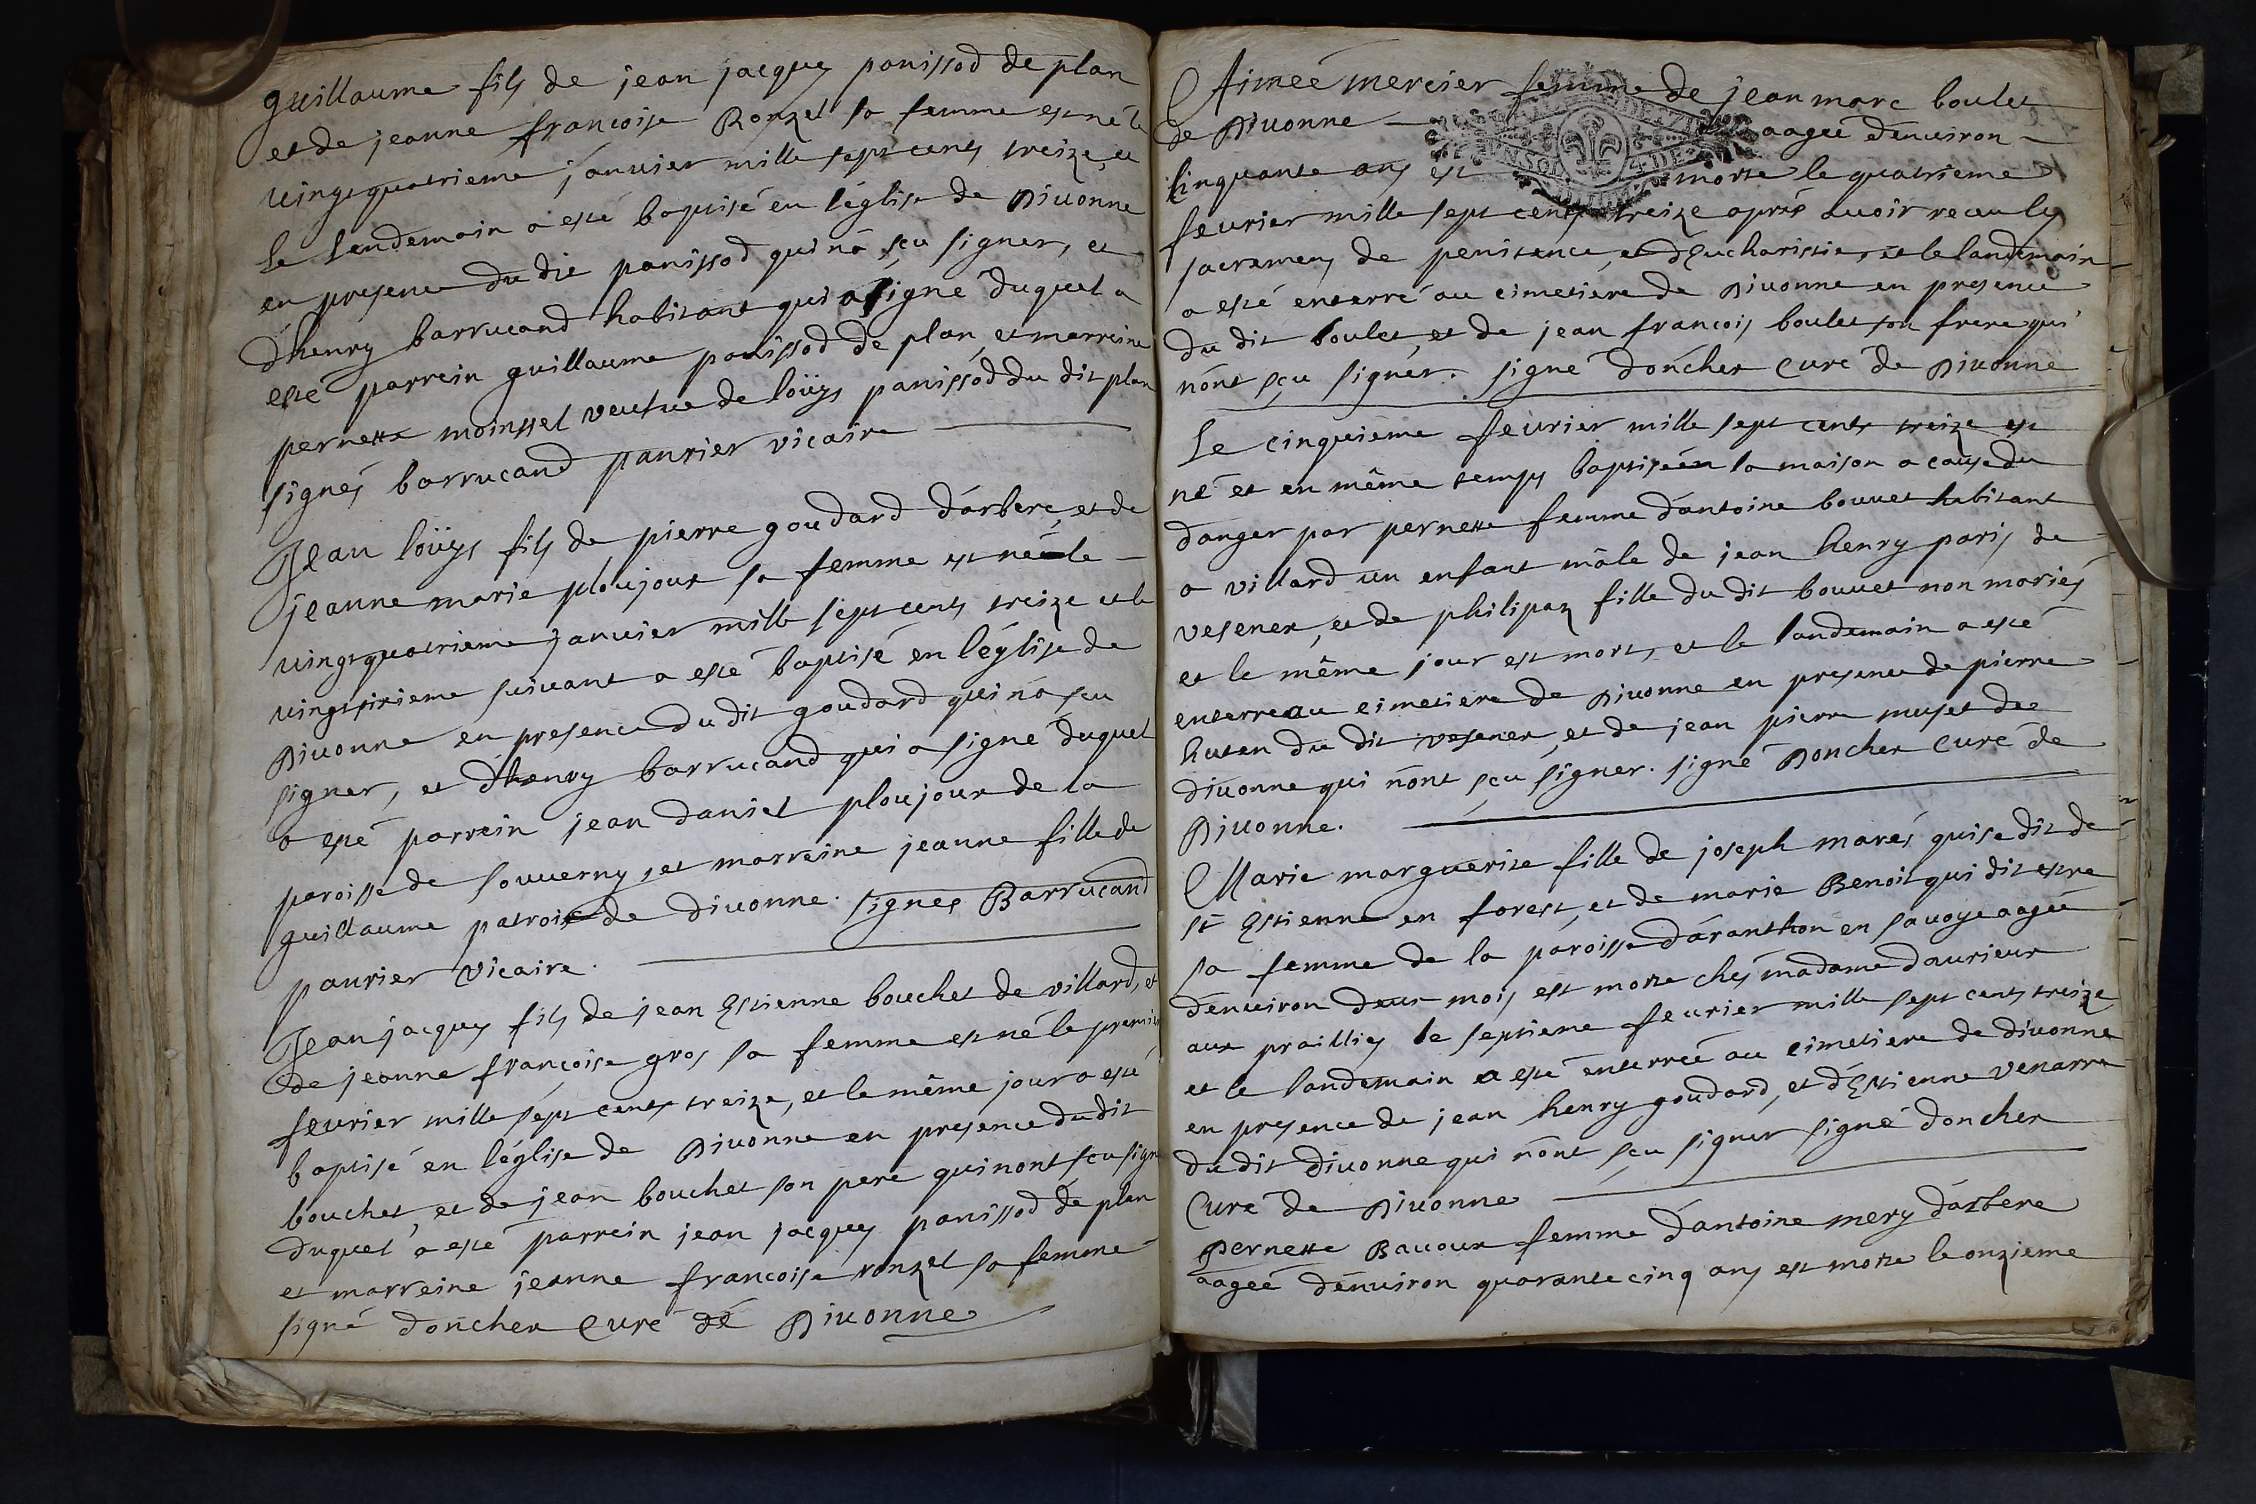 guillaume fils de jean jacques panissod de plan
et de jeanne francoise Ronzel sa femme est né le
vingtquatrieme januier mille sept cents treize, et
le lendemain a esté baptisé en l'église de Diuonne
en presence du dit panissod qui n'a sçu signer, et
d'henry barrucand habitant qui a signé duquel a
esté parrein guillaume panissod de plan, et marreine
pernette moinssel veufue de loüys panissod du dit plan
signés barrucand panrier vicaire
Jean loüys fils de pierre goudard d'arbere, et de
jeanne marie ploujoux sa femme est né le
vingtquatrieme januier mille sept cents treize et le
vingtsixieme suiuant a esté baptisé en l'église de
Diuonne en presence du dit goudard qui n'a sçu
signer, et d'henry barrucand qui a signé duquel
a esté parrein jean daniel ploujoux de la
paroisse de souuerny, et marreine jeanne fille de
guillaume patrois de diuonne. signes Barrucand
panrier vicaire.
Jean jacques fils de jean Estienne bouchet de villard, et
de jeanne françoise gros sa femme est né le premier
feurier mille sept cents treize, et le même jour a esté
baptisé en l'église de Diuonne en presence du dit
bouchet, et de jean bouchet son pere qui nont sçu sign
duquel a esté parrein jean jacques panissod de plan
et marreine jeanne francoise ronzel sa femme
signé doncher curé de Diuonne
Aimeé mercier femme de jean marc boulet
de Diuonne aageé d'enuiron
cinquante ans est morte le quatrieme
feurier mille sept cents treize aprés auoir receu les
sacremens de penitence, et d'Eucharistie, et le landemain
a esté enterré au cimetiere de Diuonne en presence
du dit boulet, et de jean françois boulet son frere qui
n'ont sçu signer. signé doncher curé de Diuonne
Le cinquieme feurier mille sept cents treize est
né et en même temps baptisé en la maison a cause du
danger par pernette femme d'antoine bouuet habitant
a villard un enfant mâle de jean henry paris de
vesenex, et de philipaz fille du dit bouuet non mariés
et le même jour est mort, et le landemain a esté
enterré au cimetiere de Diuonne en presence de pierre
huten du dit vesenex, et de jean pierre muset de
diuonne qui n'ont sçu signer. signé Doncher curé de
Diuonne.
Marie marguerite fille de joseph marés qui se dit de
st Estienne en forest, et de marie Benoit qui dit estre
sa femme de la paroisse d'aranthon en sauoye aageé
d'enuiron deux mois est morte chés madame daurieux
aux praillies le septieme feurier mille sept cents treize
et le landemain a esté enterreé au cimetiere de diuonne
en presence de jean henry goudard, et d'Estienne venarre
du dit diuonne qui n'ont sçu signer signé doncher
Curé de Diuonne
Pernette Bauoux femme d'antoine mery d'arbere
aageé d'enuiron quarante cinq ans est morte le onzieme